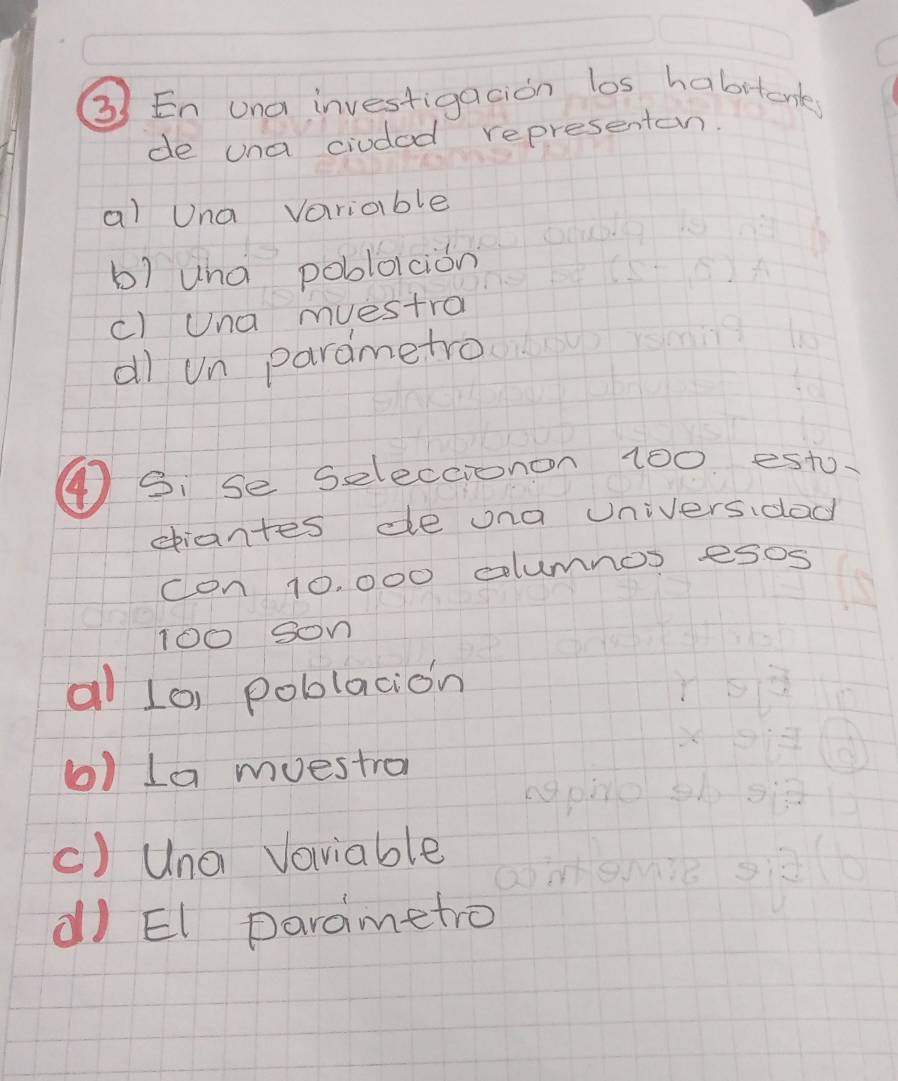 3) En una investigación los habitantes
de una ciudad representan.
a) Una variable
b) una población
c) Una muestra
d) un parámetro
4) Si se seleccionan 100 estu-
diantes de una universidad
con 10.000 alumnos esos
100 son
a) La población
b) La muestra
c) Una Variable
d) El parámetro